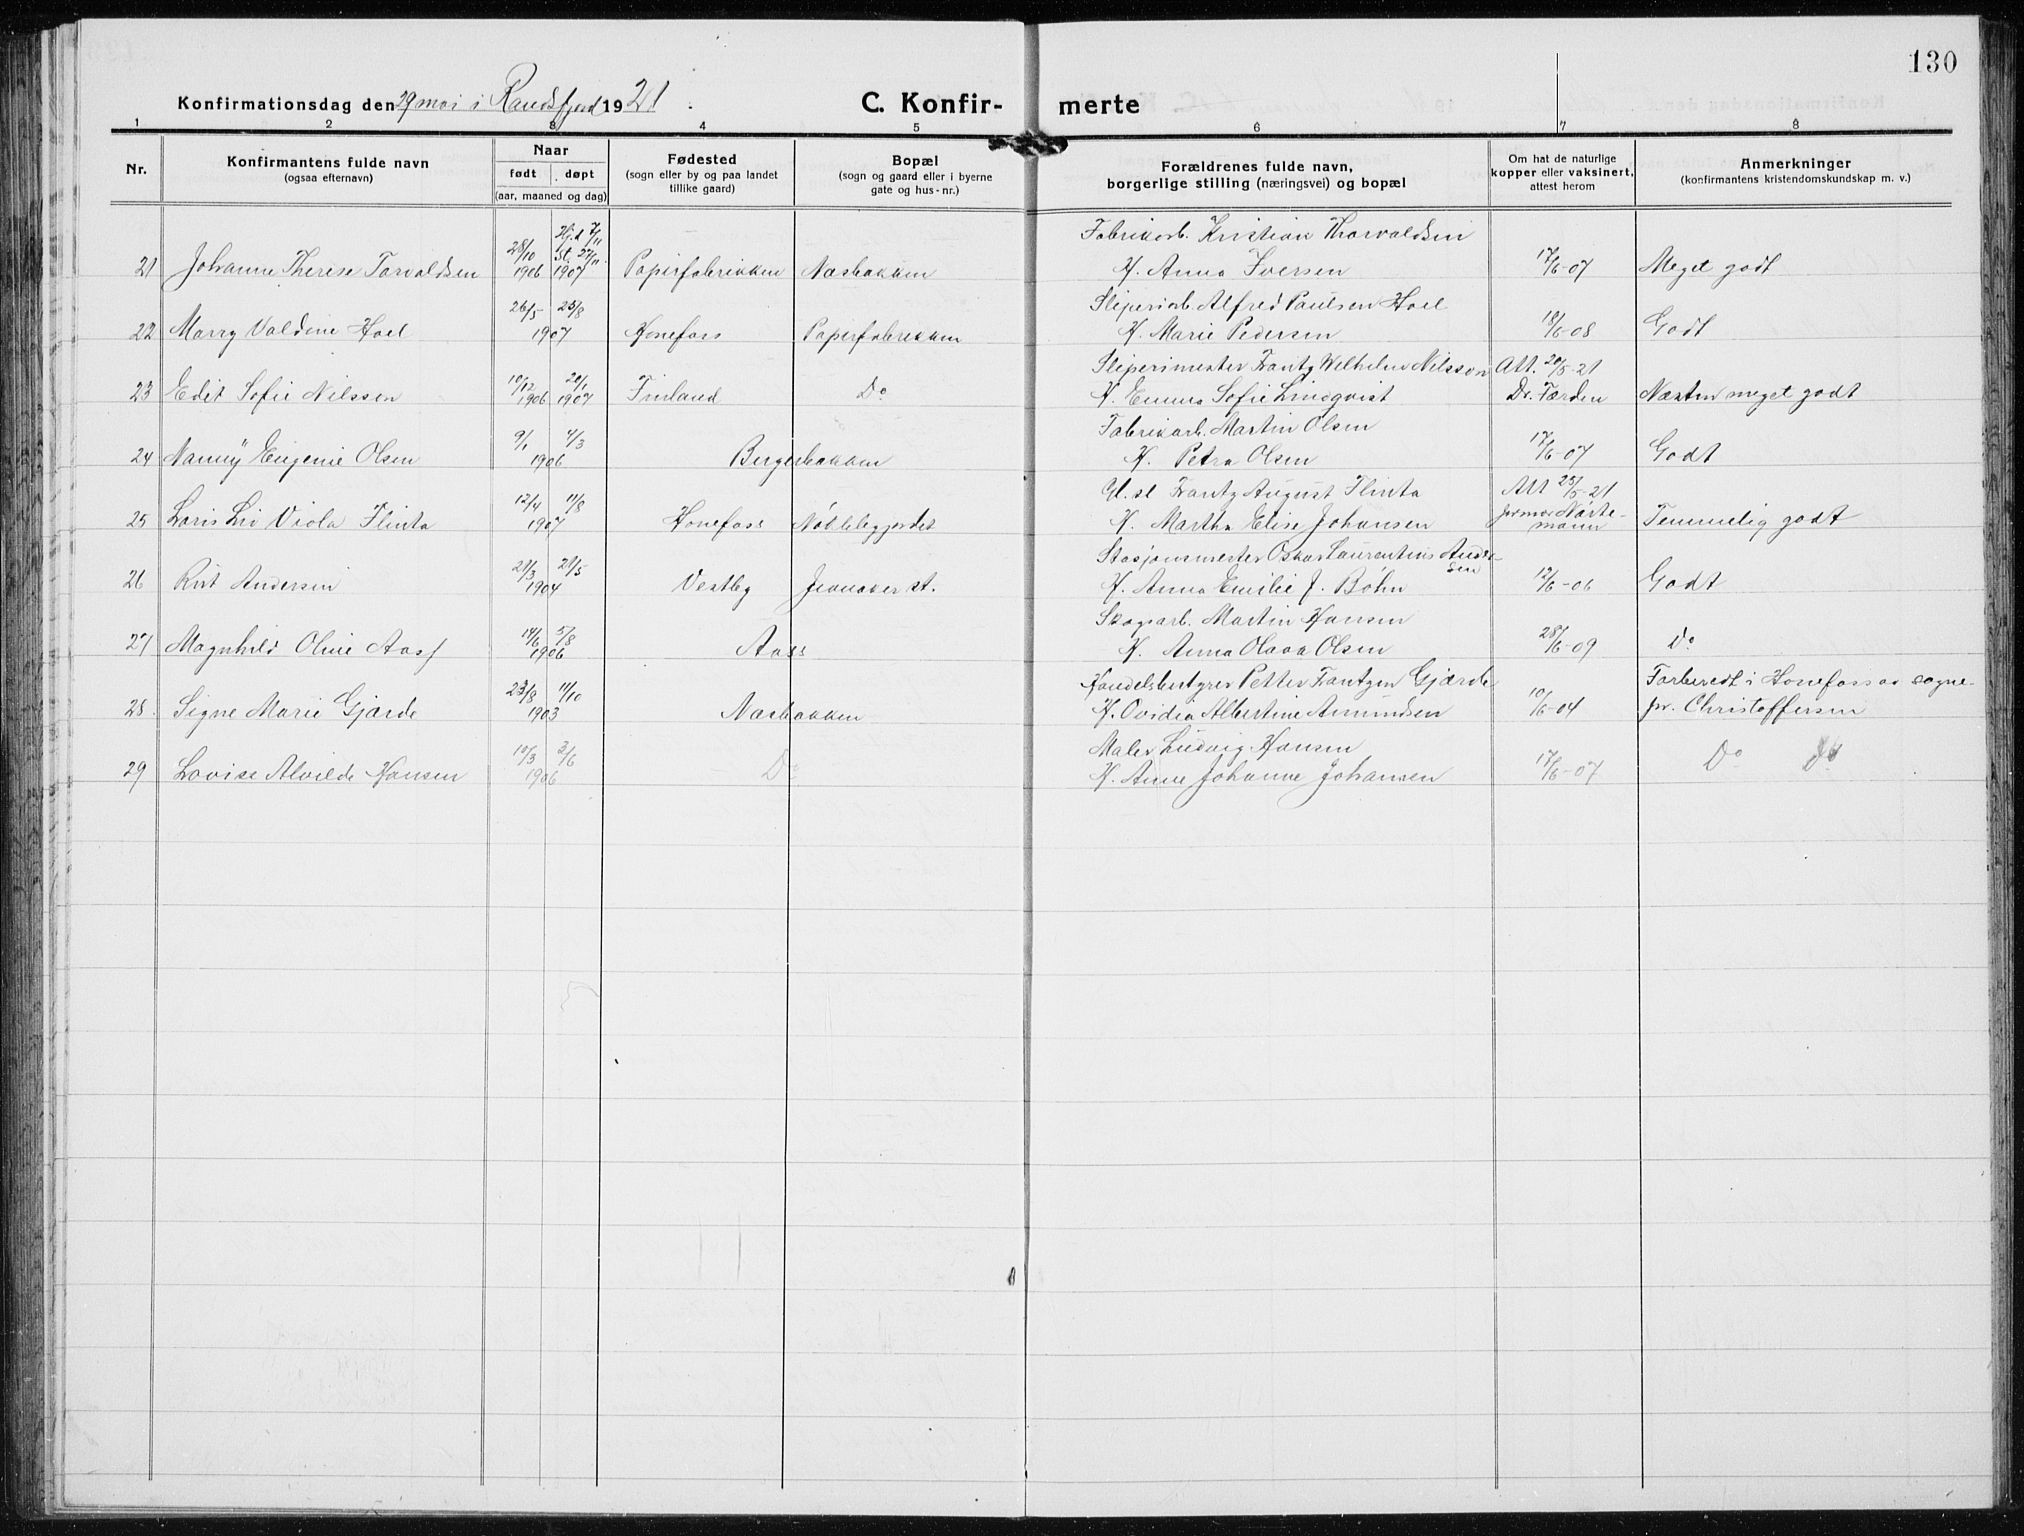 130
Konfirmationsdag den 29 mai i Randsfjord 1921.
C. Konfirmerte
1 2 3 4 5 6 7 8
Nr.
Konfirmantens fulde navn
(ogsaa efternavn)
Naar
født døpt
(aar, maaned og dag)
Fødested
(sogn eller by og paa landet
tillike gaard)
Bopæl
(sogn og gaard eller i byerne
gate og hus-nr.)
Forældrenes fulde navn,
borgerlige stilling (næringsvei) og bopæl
Om hat de naturlige
kopper eller vaksinert,
attest herom
Anmerkninger
(konfirmantens kristendomskundskap m. v.)
Hjd 7/11 Fabrikarb. Kristian Thorvaldsen
28/10 St. 27/11
21 Johanne Therese Torvaldsen 1906 1907 Papirfabrikken Næsbakken H. Anna Iversen 17/6-07 Meget godt
26/5 25/8 Sliperiarb. Alfred Paulsen Hoel
22 Marry Valdine Hoel 1907 Hønefoss Papirfabrikken H. Marie Pedersen 18/6-08 Godt
10/12 20/1 Sliperimester Frantz Wilhelm Nilsson Att. 20/5-21
23 Edit Sofie Nilssen 1906 1907 Finland Do H. Emma Sofie Lindqvist Dr. Færden Næsten meget godt
9/1 4/3 Fabrikarb. Martin Olsen
24 Nanny Eugenie Olsen 1906 Bergerbakken H. Petra Olsen 17/6-07 Godt
12/4 11/8 Gl.sl Frantz August Flinta Att 25/5-21
25 Loris Liv Viola Flinta 1907 Hønefoss Nøkleby­jordet H. Martha Elise Johansen jormor Nørte-
mann Temmelig godt
21/3 21/5 Stasjonsmester Oskar Laurentius Ander-
sen
26 Rut Andersen 1904 Vestby Jevnaker st. H. Anna Emilie J. Bøhn 12/6-06 Godt
14/6 5/8 Skogsarb. Martin Hansen
27 Magnhild Oline Aass 1906 Aass H. Anna Olava Olsen 28/6-09 Do
23/8 11/10 Handelsbestyrer Petter Frantzen Gjærde Forberedt i Hønefoss av sogne-
28. Signe Marie Gjærde 1903 Næsbakken H. Ovidia Albertine Amundsen 10/6-04 pr. Christoffersen
10/3 3/6 Maler Ludvig Hansen
29 Lovise Alvilde Hansen 1906 Do H. Anne Johanne Johansen 17/6-07 Do Do